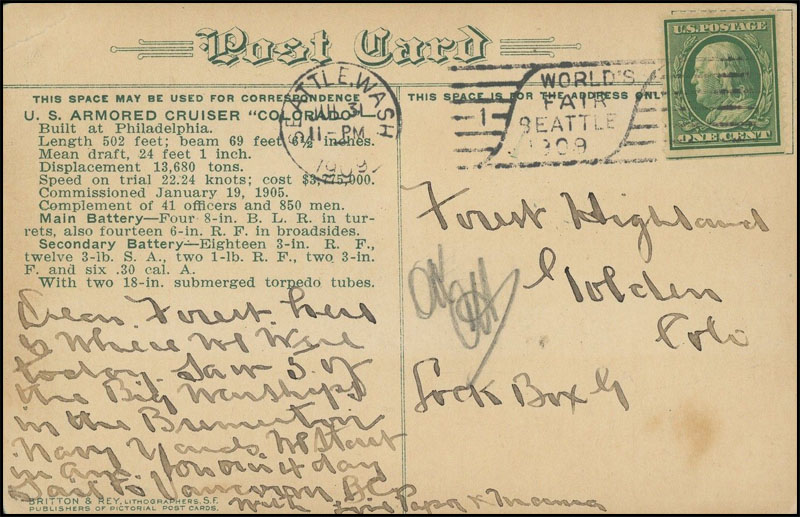 Post Card
THIS SPACE MAY BE USED FOR CORRESPONDENCE
THIS SPACE IS FOR THE ADDRESS ONLY
U. S. ARMORED CRUISER "COLORADO"
Built at Philadelphia.
Length 502 feet; beam 69 feet 6½ inches.
Mean draft, 24 feet 1 inch.
Displacement 13,680 tons.
Speed on trial 22.24 knots; cost $3,775,000.
Commissioned January 19, 1905.
Complement of 41 officers and 850 men.
Main Battery—Four 8-in. B. L. R. in tur-
rets, also fourteen 6-in. R. F. in broadsides.
Secondary Battery—Eighteen 3-in. R. F.,
twelve 3-lb. S. A., two 1-lb. R. F., two 3-in.
F. and six .30 cal. A.
With two 18-in. submerged torpedo tubes.
Dear Forest. here
is Where we Were
today. Saw 5 of
the Big Warships
in the Bremerton
Navy Yards. We Start
in and day
Sail to Vancouver, BC
with Papa & Mama
BRITTON & REY, LITHOGRAPHERS, S.F.
PUBLISHERS OF PICTORIAL POST CARDS.
SEATTLE, WASH
JUL 3
11-PM
1909
1
WORLD'S
FAIR
SEATTLE
1909
U.S. POSTAGE
ONE CENT
Forest Highland
Golden
Colo
Lock Box G